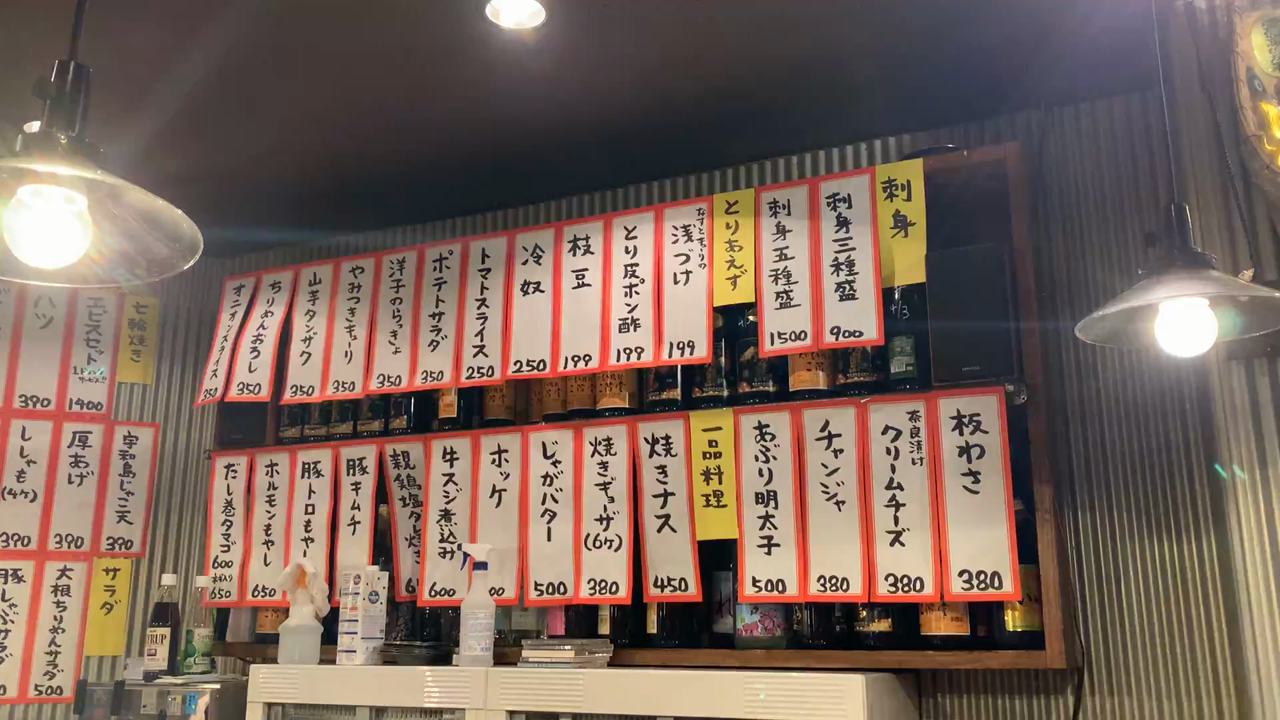 刺身
刺身三種盛
900
刺身五種盛
1500
とりあえず
なすときゅうりの
浅づけ
199
とり皮ポン酢
199
枝豆
199
冷奴
250
トマトスライス
250
ポテトサラダ
350
洋子のらっきょ
350
やみつきキューリ
350
山芋タンザク
350
ちりめんおろし
350
オニオンスライス
350
板わさ
380
奈良漬け
クリームチーズ
380
チャンジャ
380
あぶり明太子
500
一品料理
焼きナス
450
焼きギョーザ
(6ヶ)
380
じゃがバター
500
ホッケ
牛スジ煮込み
600
親鶏塩ダレ焼き
豚キムチ
豚トロもやし
ホルモンもやし
650
だし巻タマゴ
600
650
七輪焼き
エビスセット
1ドリンク
サービス!!
1400
ハツ
390
宇和島じゃこ天
390
厚あげ
390
ししゃも
(4ヶ)
390
サラダ
大根ちりめんサラダ
500
豚しゃぶサラダ